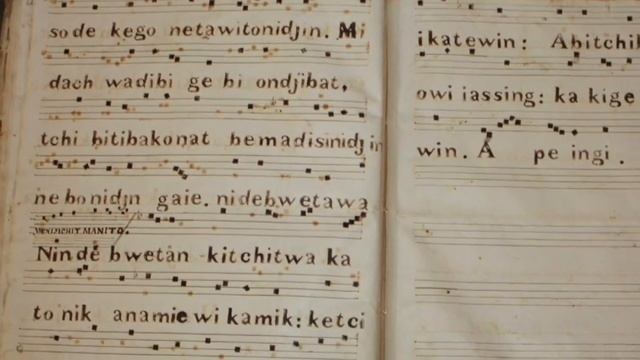 so de kego netawitonidjin. Mi
dach wadibi ge bi ondjibat,
tchi bitibakonat bemadisinidjin
nebonidjn gaie. nidebwetawa
WENIJICHIT MANITO.
Nindebwetan kitchitwa ka
tonik anamiewikamik: ketci
ikatewin: Abitchib
owi iassing: ka kige
win. A pe ingi.